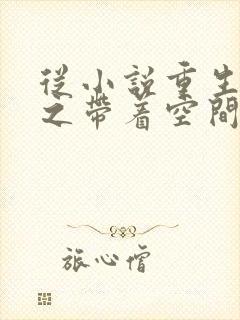 从小說重生
之帶着空間
旅心僧